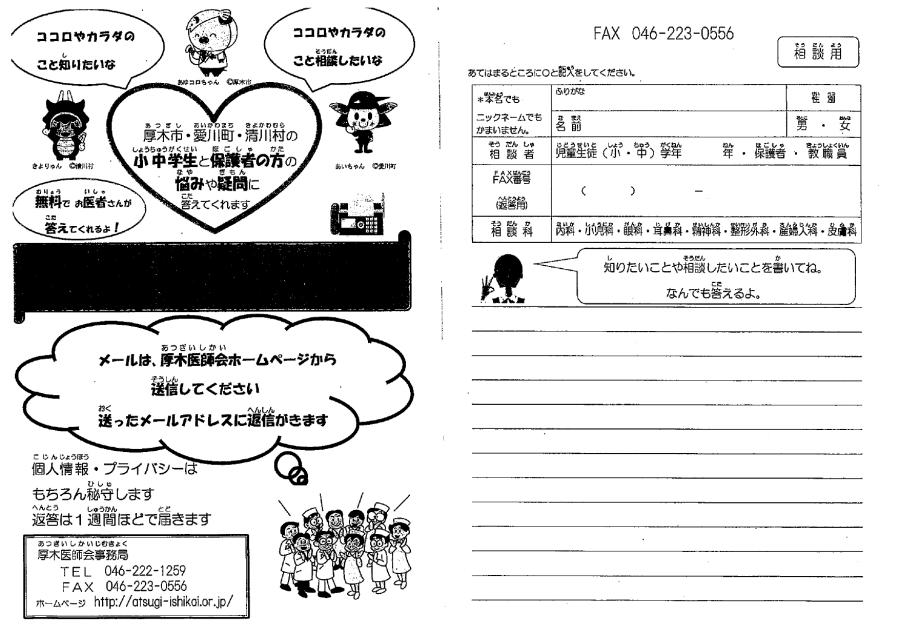 ココロやカラダの
こと知りたいな
ココロやカラダの
こと相談したいな
あゆコロちゃん ©厚木市
きよりゅん ©清川村
あいちゃん ©愛川町
厚木市・愛川町・清川村の
小中学生と保護者の方の
悩みや疑問に
答えてくれます
無料でお医者さんが
答えてくれるよ！
メールは、厚木医師会ホームページから
送信してください
送ったメールアドレスに返信がきます
個人情報・プライバシーは
もちろん秘守します
返答は１週間ほどで届きます
厚木医師会事務局
TEL 046-222-1259
FAX 046-223-0556
ホームページ http://atsugi-ishikai.or.jp/
FAX 046-223-0556
相談用
あてはまるところに○と記入をしてください。
*本名でも
ニックネームでも
かまいません。
ふりがな
名前
性別
男・女
相談者
児童生徒（小・中）学年 年・保護者・教職員
FAX番号
(返答用)
（ ） －
相談科
内科・小児科・眼科・耳鼻科・精神科・整形外科・産婦人科・皮膚科
知りたいことや相談したいことを書いてね。
なんでも答えるよ。